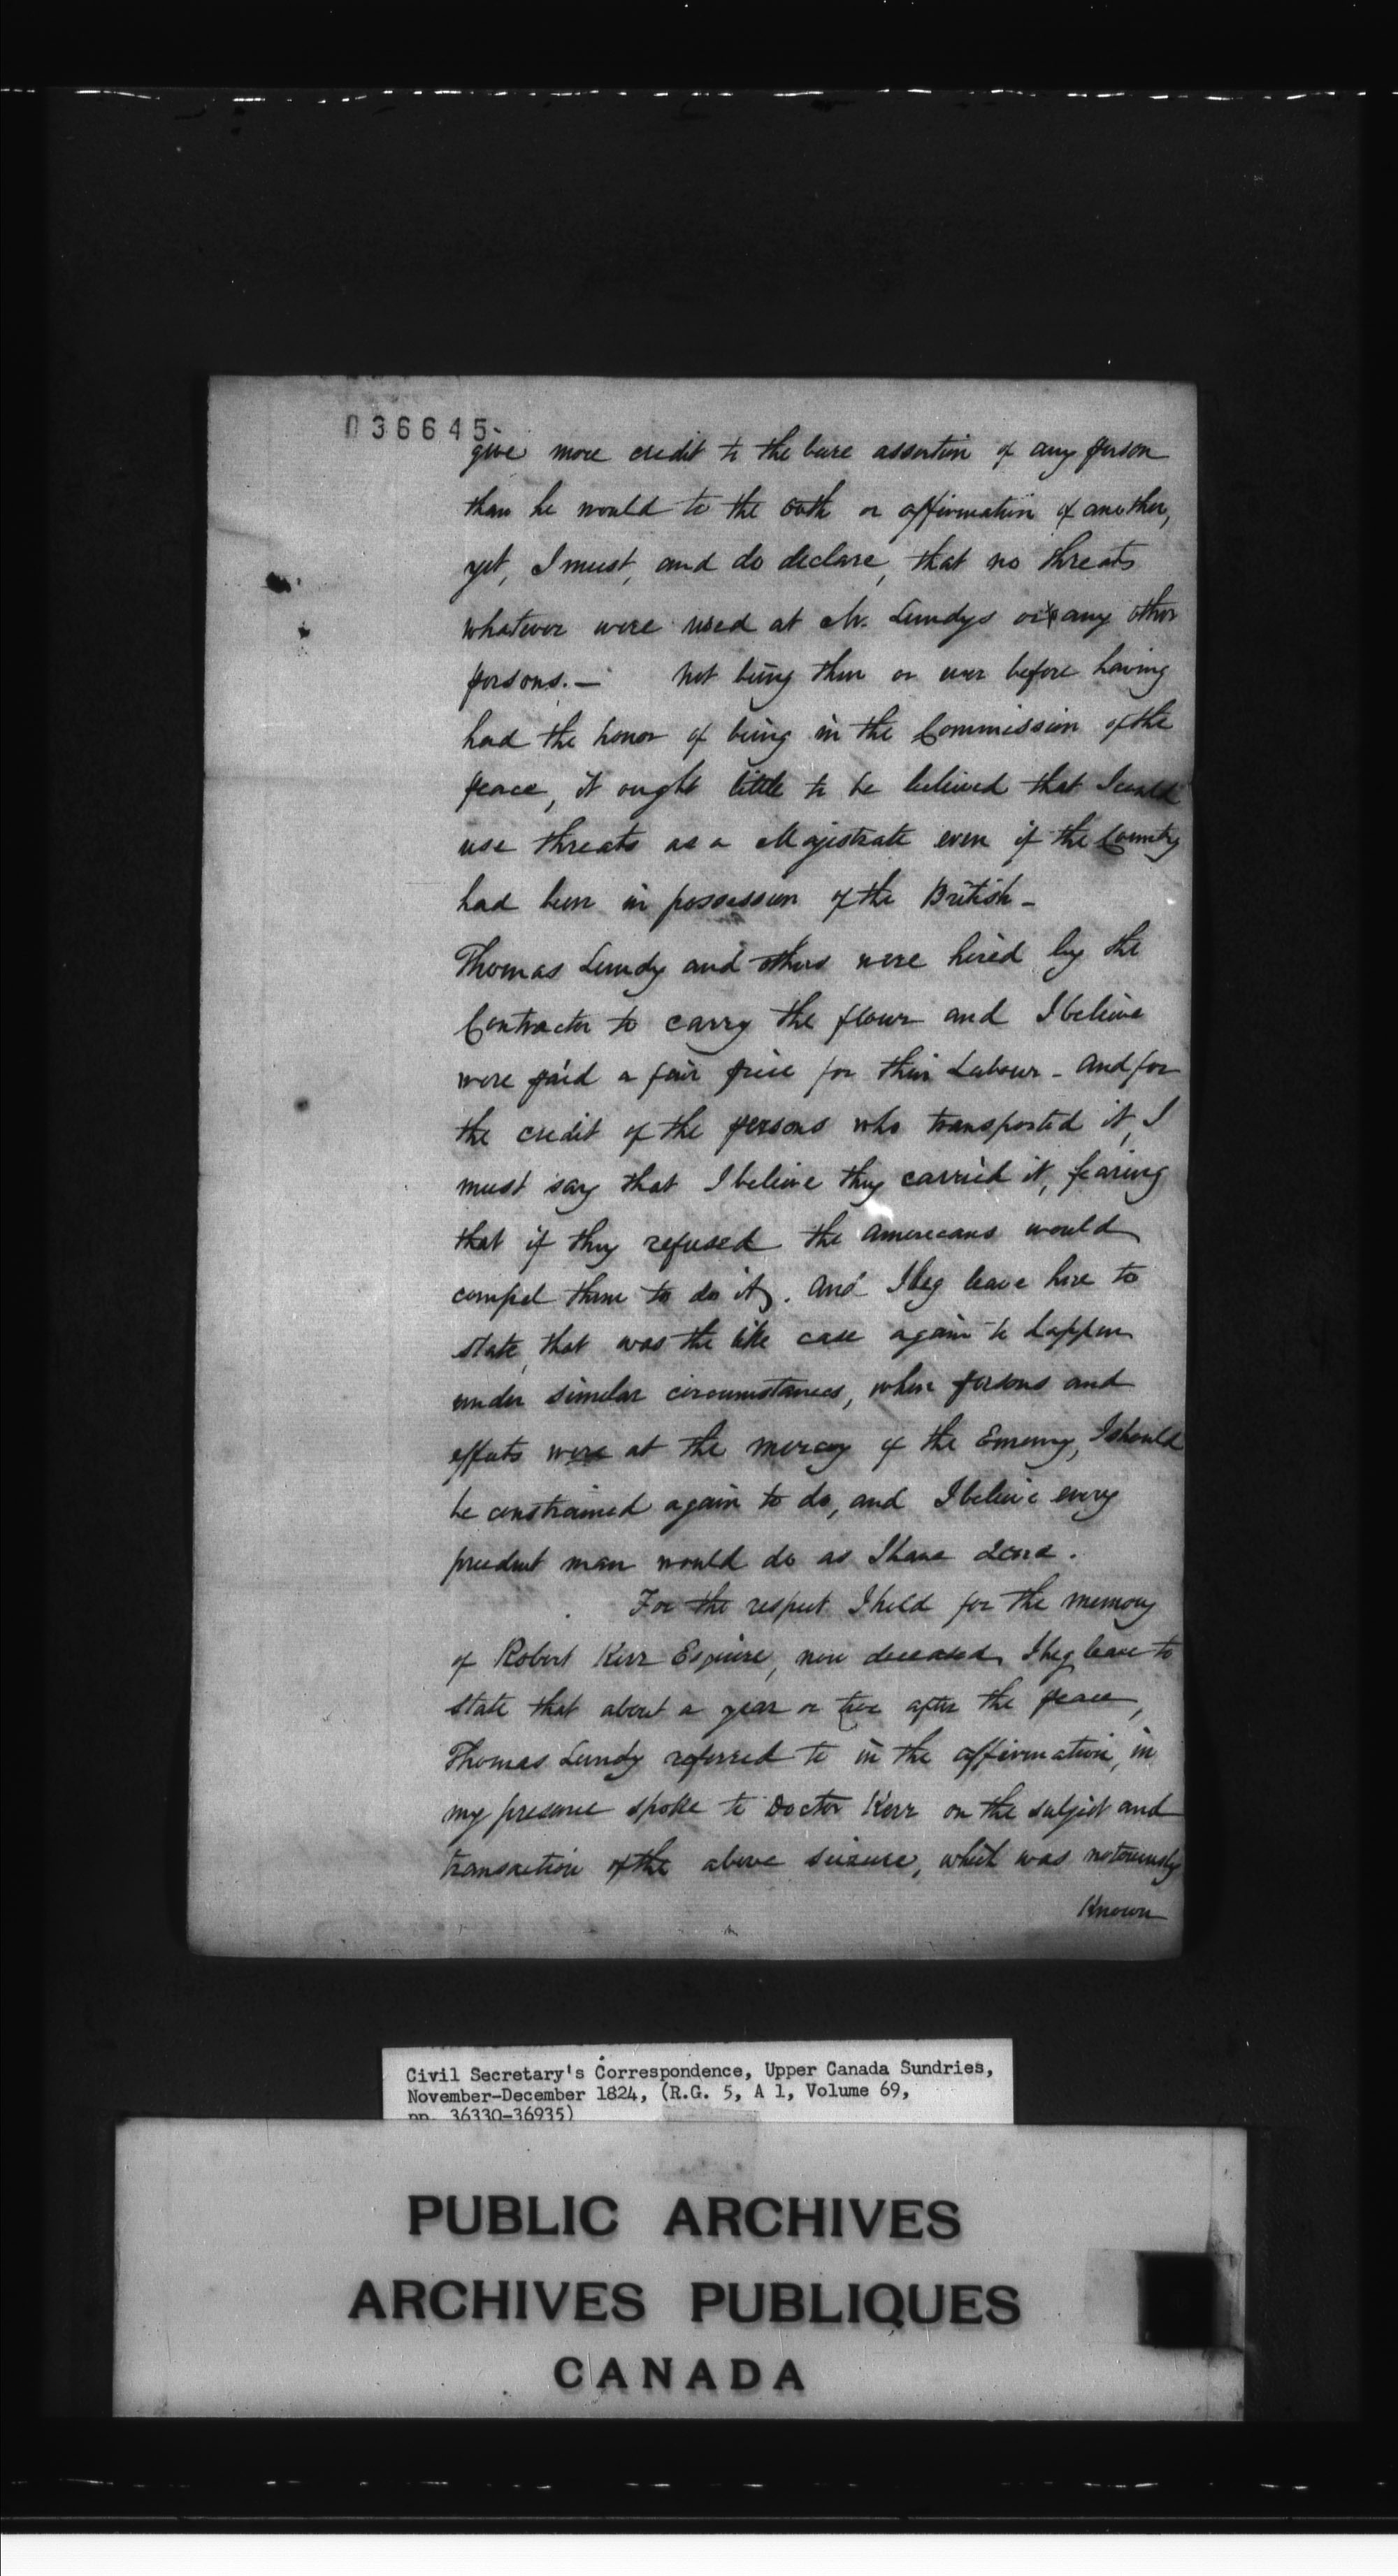 036645
give more credit to the bare assertion of any person
than he would to the oath or affirmation of another,
yet, I must, and do declare, that no threats
whatever were used at Mr. Lundys or any other
persons. — Not being then or ever before having
had the honor of being in the Commission of the
peace, it ought little to be believed that I could
use threats as a Majestrate even if the Country
had been in possession of the British –
Thomas Lundy and others were hired by the
Contractor to carry the flour and I believe
were paid a fair price for their Labour – and for
the credit of the persons who transported it, I
must say that I believe they carried it, fearing
that if they refused the americans would
compel them to do it. And I beg leave here to
state, that was the like case again to happen
under similar circumstances, when persons and
effects were at the mercy of the Enemy, I should
be constrained again to do, and I believe every
prudent man would do as I have done.
For the respect I held for the memory
of Robert Kerr Esquire, now deceased, I beg leave to
state that about a year or two after the peace,
Thomas Lundy referred to in the affirmation, in
my presence spoke to Doctor Kerr on the subject and
transaction of the above seizure, which was notoriously
Known
Civil Secretary's Correspondence, Upper Canada Sundries,
November-December 1824, (R.G. 5, A 1, Volume 69,
pp. 36330-36935)
PUBLIC ARCHIVES
ARCHIVES PUBLIQUES
CANADA